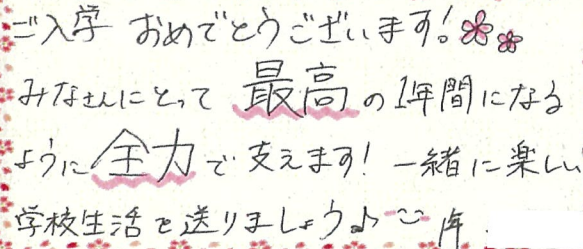 ご入学 おめでとうございます!
みなさんにとって 最高 の 1年間になる
ように 全力 で 支えます! 一緒に楽しい
学校生活を送りましょう♪